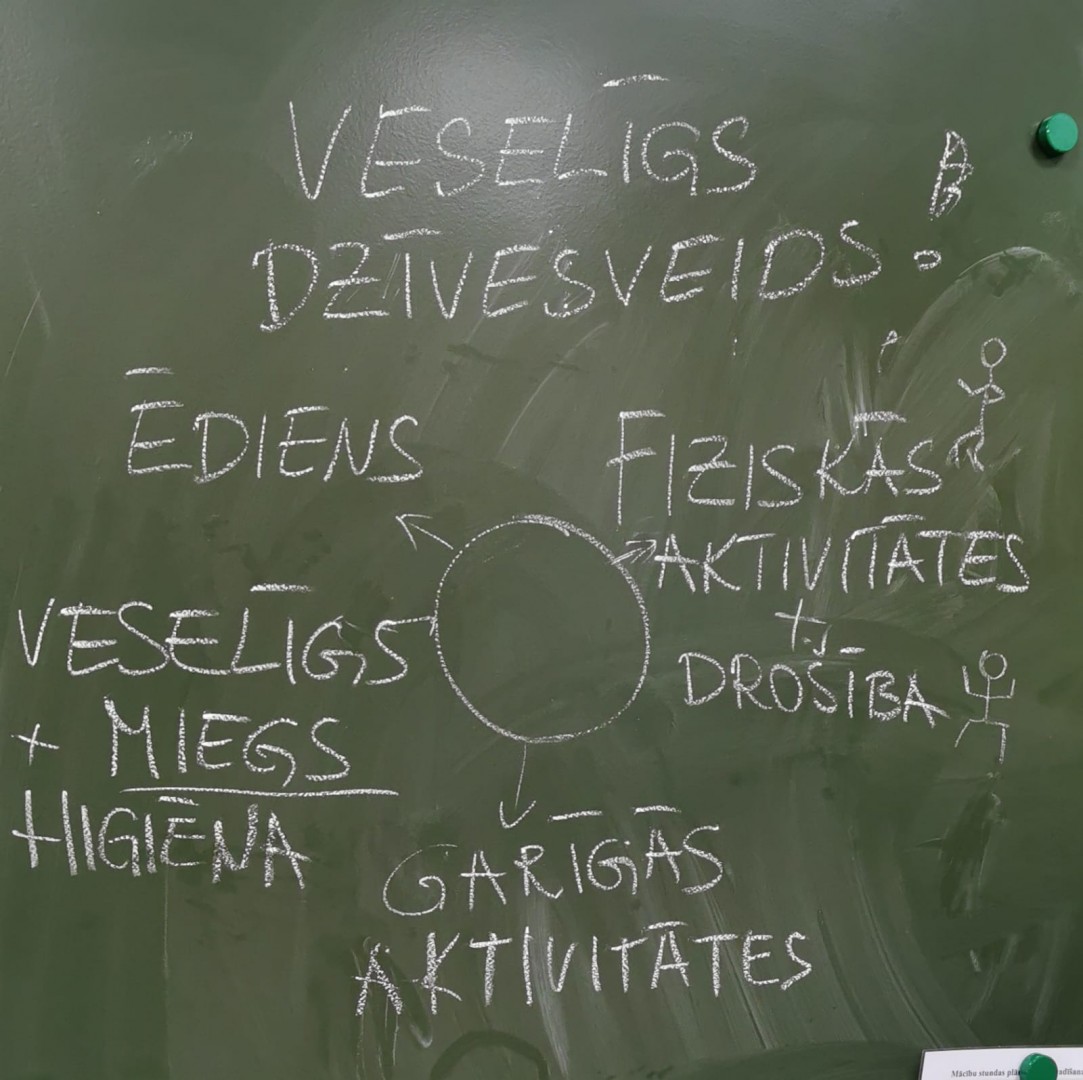 VESELĪGS
DZĪVESVEIDS:
A
B
ĒDIENS
FIZISKĀS
AKTIVITĀTES
+
DROŠĪBA
VESELĪGS
+ MIEGS
HIGIĒNA
GARĪGĀS
AKTIVITĀTES
Mācību stundas